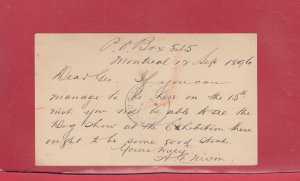 P.O. Box 545
Montreal 18 Sep 1896
Dear Geo. If you can
manage to be here on the 15th
inst. you will be able to see the
Dog Show at the Exhibition there
ought to be some good stock.
Yours truly